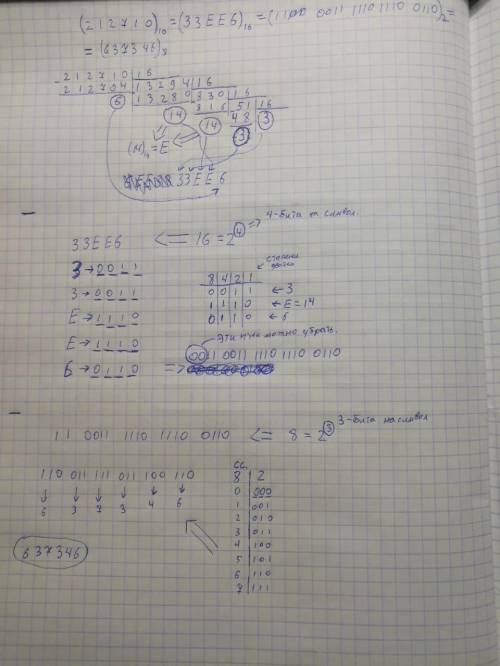 (212710)₁₀ = (33EE6)₁₆ = (1100 0011 1110 1110 0110)₂ =
= (637346)₈
- 212710 | 16
212704 | 13294 | 16
6 13280 830 | 16
14 816 51 | 16
14 48 3
3
(14)₁₀ = E
33EE6
33EE6 <= 16 = 2⁴ => 4-бита на символ.
3 → 0011
3 → 0011
E → 1110
E → 1110
6 → 0110 =>
степени двойки
8 4 2 1
0 0 1 1 ← 3
1 1 1 0 ← E = 14
0 1 1 0 ← 6
Эти нули можно убрать.
0011 0011 1110 1110 0110
11 0011 1110 1110 0110 <= 8 = 2³ 3-бита на символ
110 011 111 011 100 110
6 3 7 3 4 6
637346
сс.
8 2
0 000
1 001
2 010
3 011
4 100
5 101
6 110
7 111